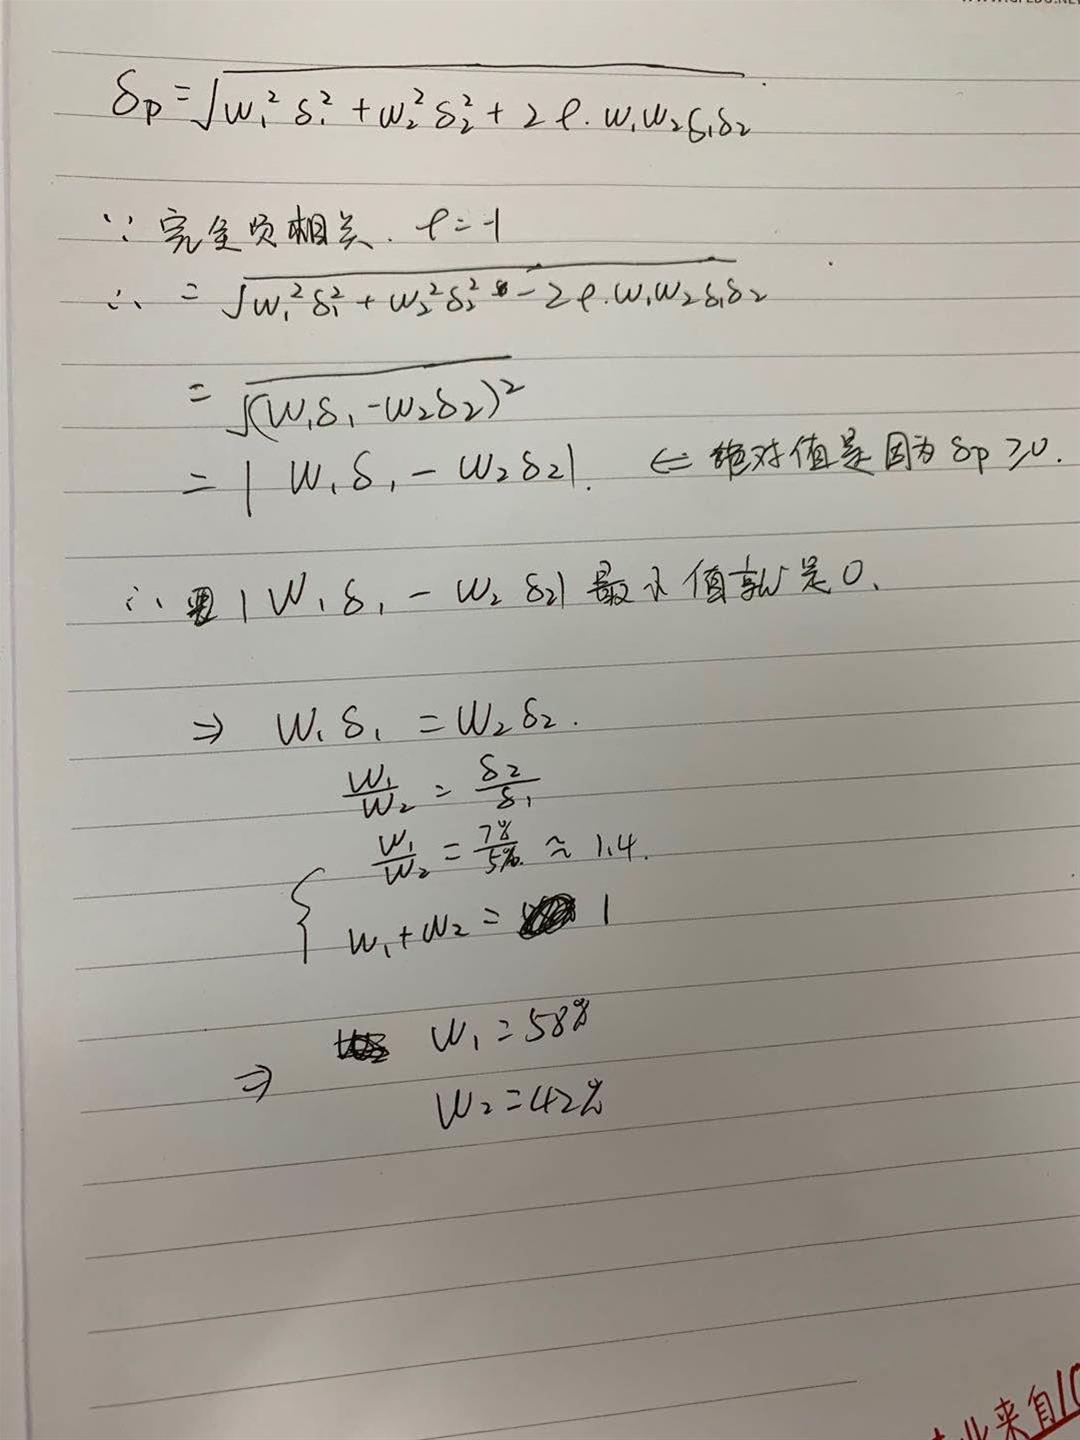 δp = √(w₁²δ₁² + w₂²δ₂² + 2ρ.w₁w₂δ₁δ₂)
∵ 完全负相关. ρ=-1
∴ = √(w₁²δ₁² + w₂²δ₂² - 2ρ.w₁w₂δ₁δ₂)
= √(w₁δ₁-w₂δ₂)²
= |w₁δ₁ - w₂δ₂|. ⇐ 绝对值是因为 δp ≥0.
∴ 要 |w₁δ₁ - w₂δ₂| 最小值就是0.
⇒ w₁δ₁ = w₂δ₂.
w₁/w₂ = δ₂/δ₁
{ w₁/w₂ = 7%/5% ≈ 1.4.
w₁+w₂ = 1
w₁=58%
⇒
w₂=42%
业来自10